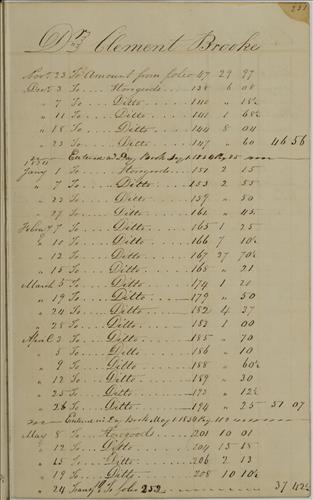 251
Dr Clement Brooke
Novr. 23 To Amount from folio 47 29 97
Decr 3 To Storegoods 138 6 08
" 7 To Ditto 140 " 18¾
" 11 To Ditto 141 1 68¾
" 18 To Ditto 144 8 04
" 23 To Ditto 147 " 60 46 56
Entered in Day Book
Jany 1 To Storegoods 151 2 15
" 7 To Ditto 153 2 55
" 22 To Ditto 159 " 50
" 27 To Ditto 161 " 45
Febry 7 To Ditto 165 1 25
" 10 To Ditto 166 7 10½
" 12 To Ditto 167 27 70½
" 15 To Ditto 168 " 21
March 5 To Ditto 174 1 20
" 19 To Ditto 179 " 50
" 24 To Ditto 182 4 37
" 28 To Ditto 183 1 00
April 3 To Ditto 185 " 70
" 5 To Ditto 186 " 10
" 9 To Ditto 188 " 60½
" 12 To Ditto 189 " 30
" 25 To Ditto 193 " 12½
" 26 To Ditto 194 " 25 51 07
Entered in Day Book May 1 1834
May 8 To Storegoods 201 10 01
" 12 To Ditto 204 15 18
" 15 To Ditto 206 2 13
" 19 To Ditto 208 10 10½
" 24 Transfd To folio 252 37 42½